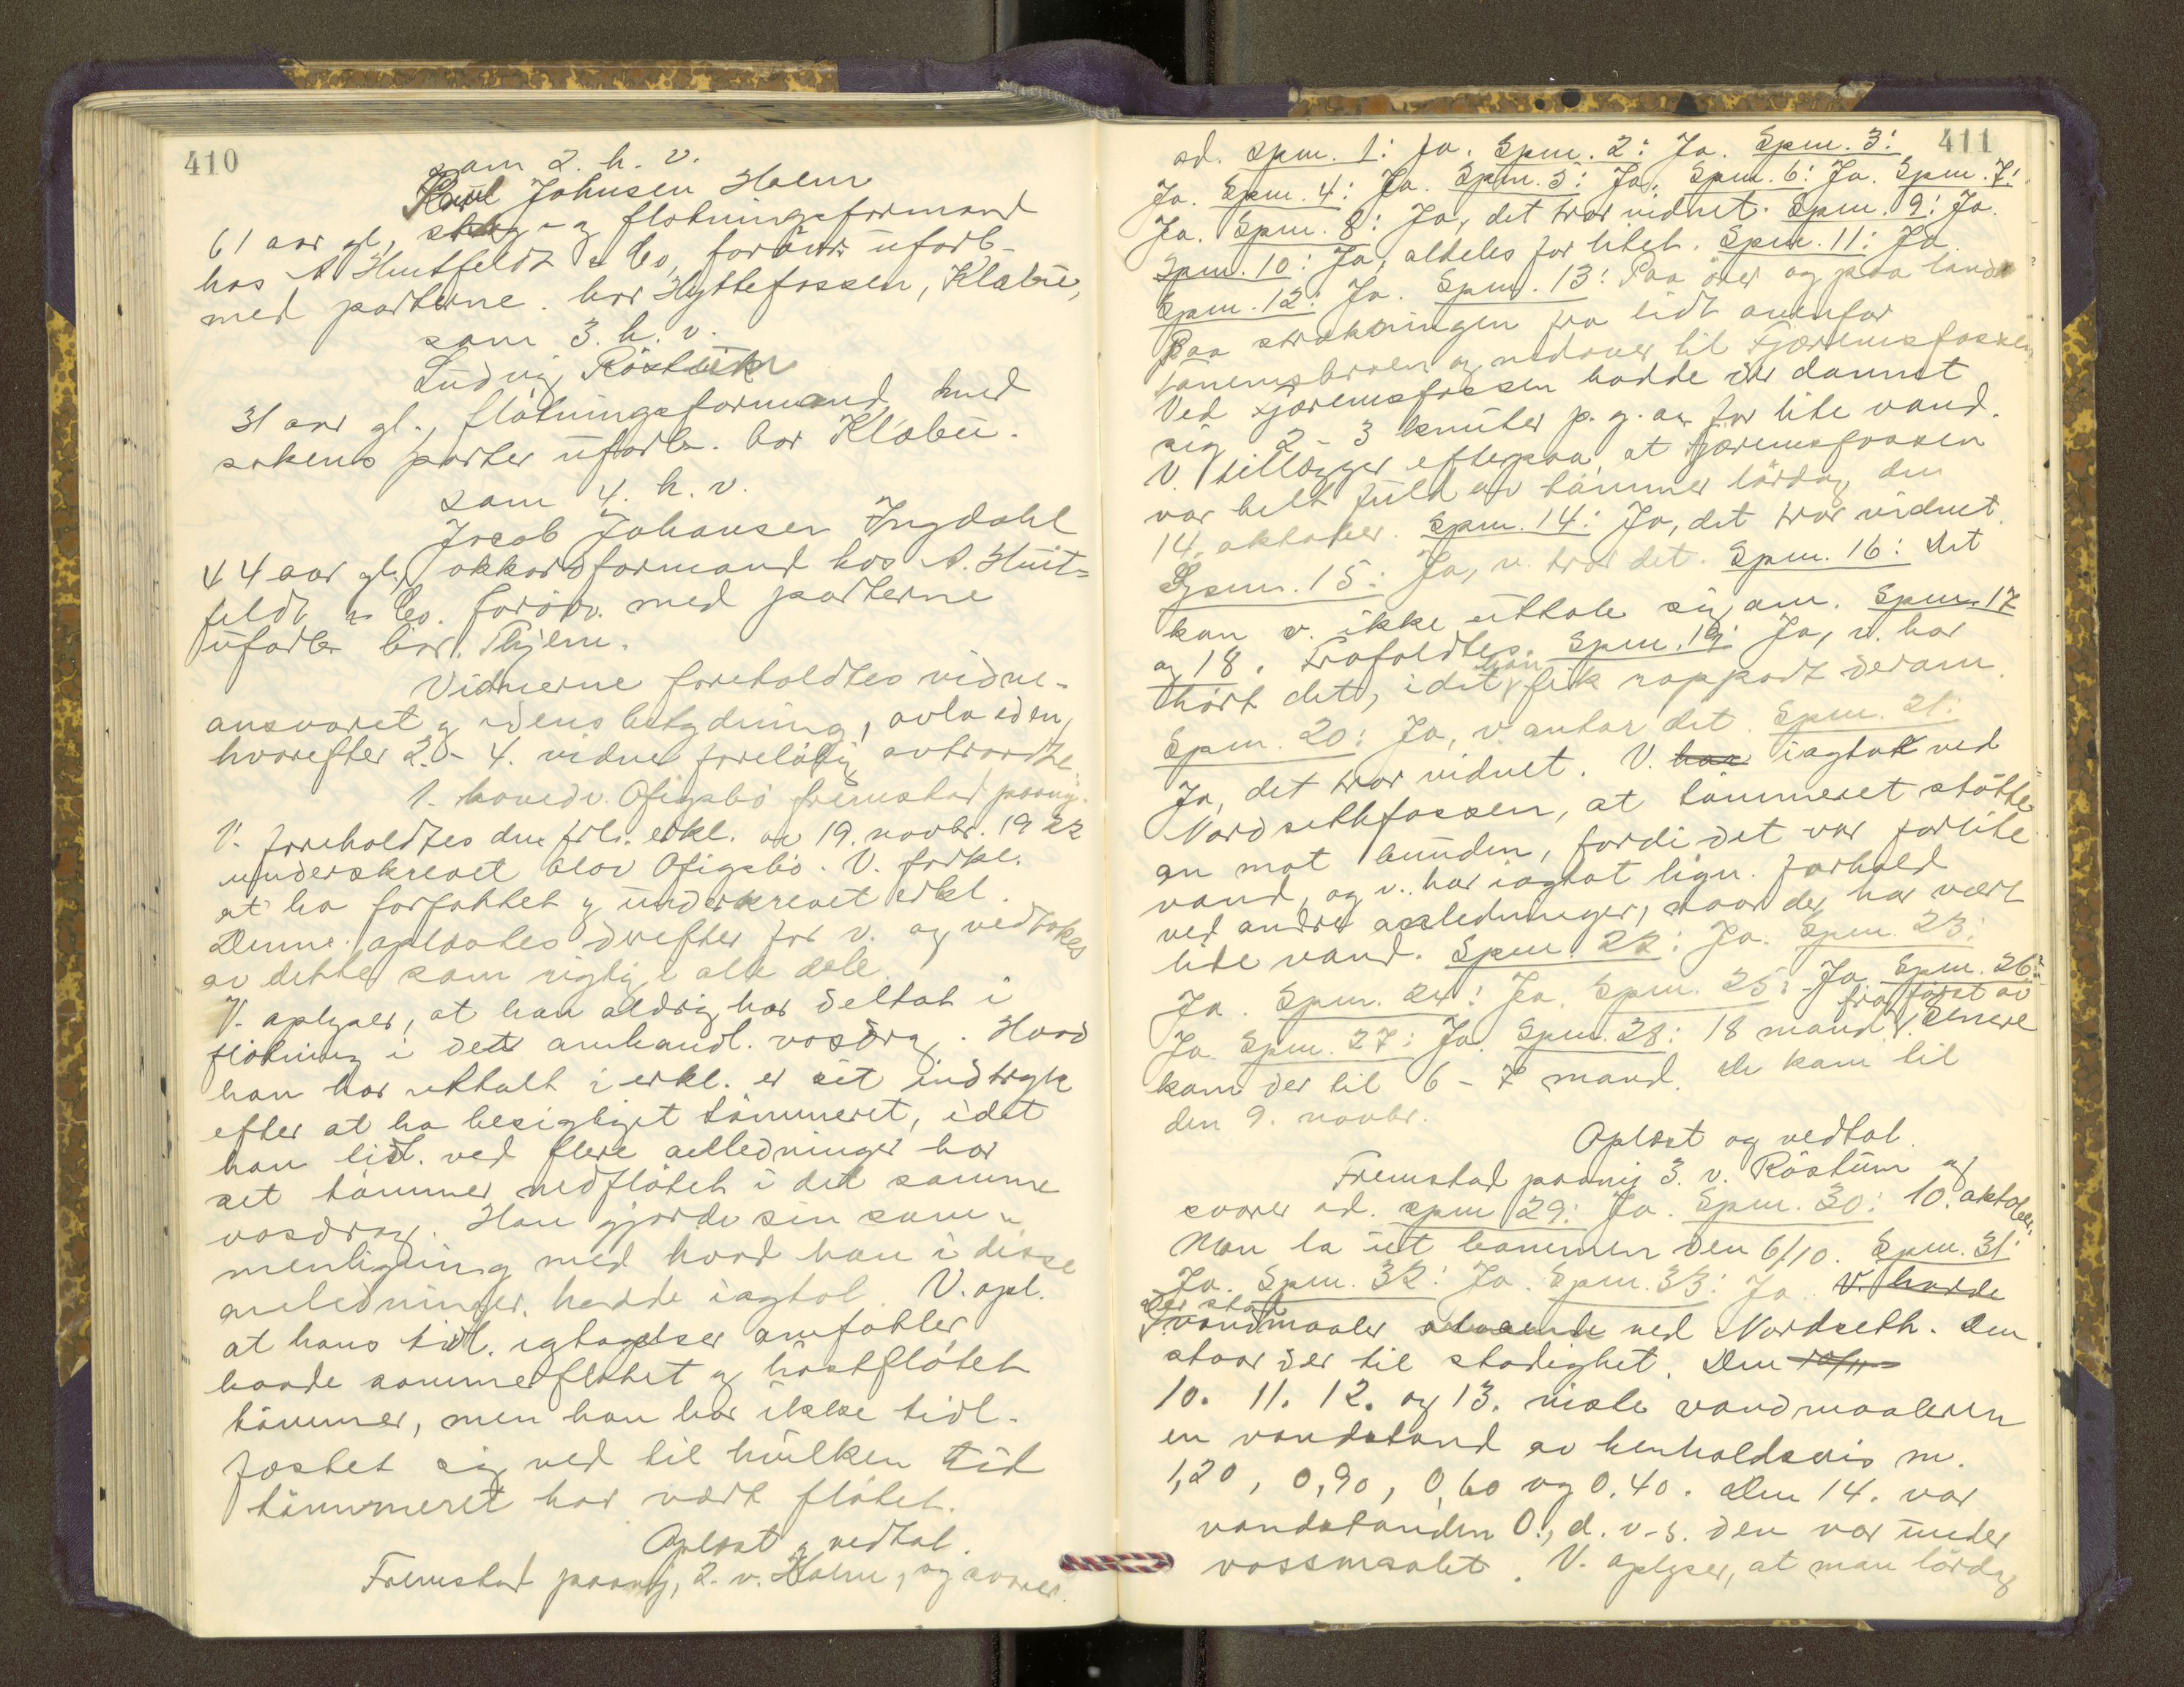 410
som 2. h. v.
Karl Johnsen Holm
61 aar gl., skog- og flötningsformand
hos A Huitfeldt & Co, forövr uforb.
med parterne. bor Hyttefossen, Klæbu,
som 3. h. v.
Ludvig Röstum
31 aar gl., flötningsformand med
sakens parter uforb. bor Klæbu.
som 4. h. v.
Jacob Johansen Ingdahl
44 aar gl., akkordformand hos A. Huit-
feldt & Co. forövr. med parterne
uforb. bor. Thjem.
Vidnerne foreholdtes vidne-
ansvaret og edens betydning, avla eden,
hvorefter 2.- 4. vidne foreløbig avtraadte.
1. hovedv. Ofigsbö fremstod paany.
V. foreholdtes den frl. erkl. av 19. novbr. 1922
underskrevet Olav Ofigsbö. V. forkl.
at ha forfattet og underskrevet erkl.
Denne oplæstes derefter for v. og vedtokes
av dette som rigtig i alle dele.
V. oplyser, at han aldrig har deltat i
flötning i det omhandl. vasdrag. Hvad
han har uttalt i erkl. er sit indtryk
efter at ha besigtiget tömmeret, idet
han tidl. ved flere anledninger har
set tömmer nedflötet i det samme
vasdrag. Han gjorde sin sam-
menligning med hvad han i disse
anledninger hadde iagtat. V. opl.
at hans tidl. iagtagelser omfatter
baade sommerflötet og höstflötet
tömmer, men han har ikke tidl.
fæstet sig ved til hvilken tid
tömmeret har vært flötet.
Oplæst og vedtat.
Fremstod paany, 2. v. Holm, og svarer
411
ad. spm. 1: Ja. Spm. 2: Ja. Spm. 3:
Ja. Spm. 4: Ja. Spm. 5: Ja. Spm. 6: Ja. Spm. 7:
Ja. Spm. 8: Ja, det tror vidnet. Spm. 9: Ja.
Spm. 10: Ja, aldeles for litet. Spm. 11: Ja.
Spm. 12: Ja. Spm. 13: Paa örer og paa land
Paa strækningen fra lidt ovenfor
Tanemsbroen og nedover til Fjæremsfossen
Ved Fjæremsfossen hadde der dannet
sig 2 - 3 knuter p. g. av for lite vand.
V. tillægger efterpaa, at Fjæremsfossen
var helt fuld av tömmer lördag den
14. oktober. Spm. 14: Ja, det tror vidnet.
Spm. 15: Ja, v. tror det. Spm. 16: Det
kan v. ikke uttale sig om. Spm. 17
og 18. Frafaldtes. Spm. 19: Ja, v. har
hört det, idet han fik rapport derom.
Spm. 20: Ja, v. antar det. Spm. 21:
Ja, det tror vidnet. V. har iagtok ved
Nordsethfossen, at tömmeret stötte
an mot bunden, fordi det var for lite
vand, og v. har iagtat lign. forhold
ved andre anledninger, naar der har vært
lite vand. Spm. 22: Ja. Spm. 23:
Ja. Spm. 24: Ja. Spm. 25: Ja. Spm. 26:
Ja. Spm. 27: Ja. Spm. 28: 18 mand fra först av. Senere
kom der til 6 - 7 mand. De kom til
den 9. novbr.
Oplæst og vedtat.
Fremstod paany 3. v. Röstum og
svarer ad. spm 29: Ja. Spm. 30: 10. oktober.
Man la ut bommen den 6/10. Spm. 31:
Ja. Spm. 32: Ja. Spm. 33: Ja. V. hadde
Der stod
vandmaaler staaende ved Nordseth. Den
staar der til stadighet. Den 10/11
10. 11. 12. og 13. viste vandmaaleren
en vandstand av henholdsvis m.
1,20, 0,90, 0,60 og 0.40. Den 14. var
vandstanden 0., d. v. s. den var under
vassmaalet. V. oplyser, at man lördag